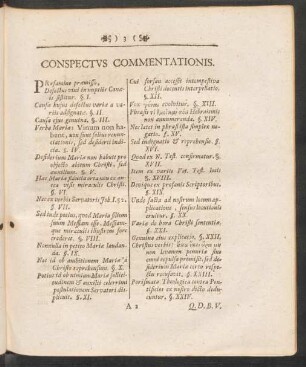 3
CONSPECTVS COMMENTATIONIS.
Prefamine præmisso,
Defectus vini in nuptiis Canæ
is sistitur. §. I.
Causa hujus defectus varia a va-
riis assignatæ. §. II.
Causa ejus genuina. §. III.
Verba Mariæ: Vinum non ha-
bent, non sunt solius commi-
serationis, sed desiderii indi-
cia. §. IV.
Desiderium Mariæ non habuit pro
objecto aliam Christi, sed
§. V.
Hæc Mariæ fiducia orta non ex
ante a visis miraculis Christi.
§. VI.
Nec ex verbis Servatoris Joh. I. 52.
§. VII.
Sed inde potius, quod Maria filium
suum Messiam esse, Messiam-
que miraculis illustrem fore
crederet. §. VIII.
Nonnulla in petitione Mariæ laudan-
da. §. IX.
Non id ob ambitionem Maria a
Christo reprehensa. §. X.
Potius id ob nimiam Mariæ sollici-
tudinem & auxilii celerioris
postulationem Servatori dis-
plicuit. §. XI.
Cui forsan accessit intempestiva
Christi docentis interpellatio.
§. XII.
Vox γύναι excutitur. §. XIII.
Phrasis τί ἐμοὶ καὶ σοὶ Hebraismis
non annumeranda. §. XIV.
Nec latet in phrasi ista simplex ne-
gatio. §. XV.
Sed indignatio & reprehensio. §.
XVI.
Quod ex N. Test. confirmatur. §.
XVII.
Item ex variis Vet. Test. locis
§. XVIII.
Denique ex profanis Scriptoribus.
§. XIX.
Unde facta ad nostrum locum ap-
plicatione, sensus locutionis
eruitur. §. XX.
Variæ de hora Christi sententiæ.
§. XXI.
Genuina ejus explicatio. §. XXII.
Christus verbis: hora mea
non Mariam petitio sua
repulsa, sed de-
siderium Mariæ certo respon-
so recusavit. §. XXIII.
Porismata Theologica contra Pon-
tificios ex nostro dicto dedu-
cuntur. §. XXIV.
A 2
Q. D. B. V.